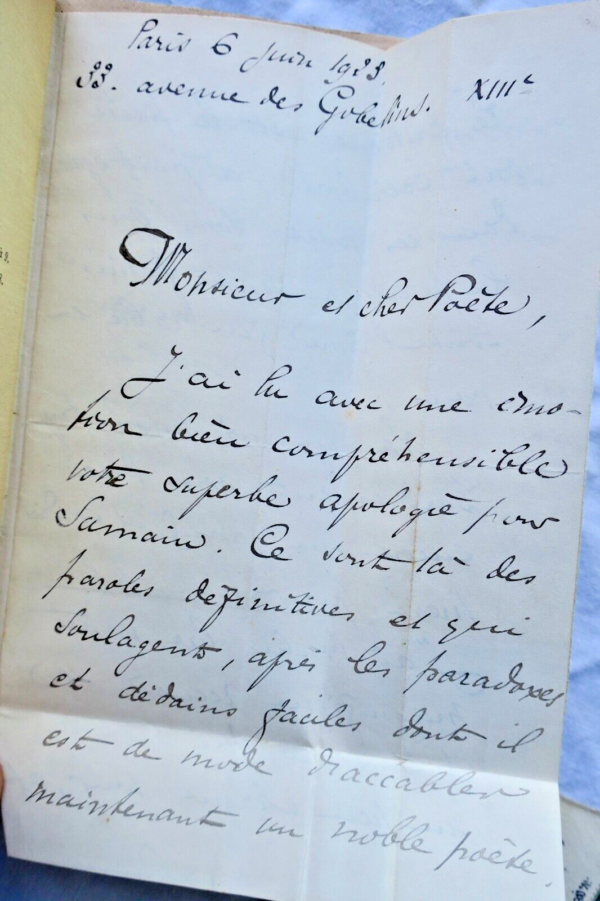 Paris 6 Juin 1923.
33. avenue des Gobelins. XIIIe
Monsieur et cher Poète,
J'ai lu avec une émo-
tion bien compréhensible
votre superbe apologie pour
Samain. Ce sont là des
paroles définitives et qui
soulagent, après les paradoxes
et dédains faciles dont il
est de mode d'accabler
maintenant un noble poète.